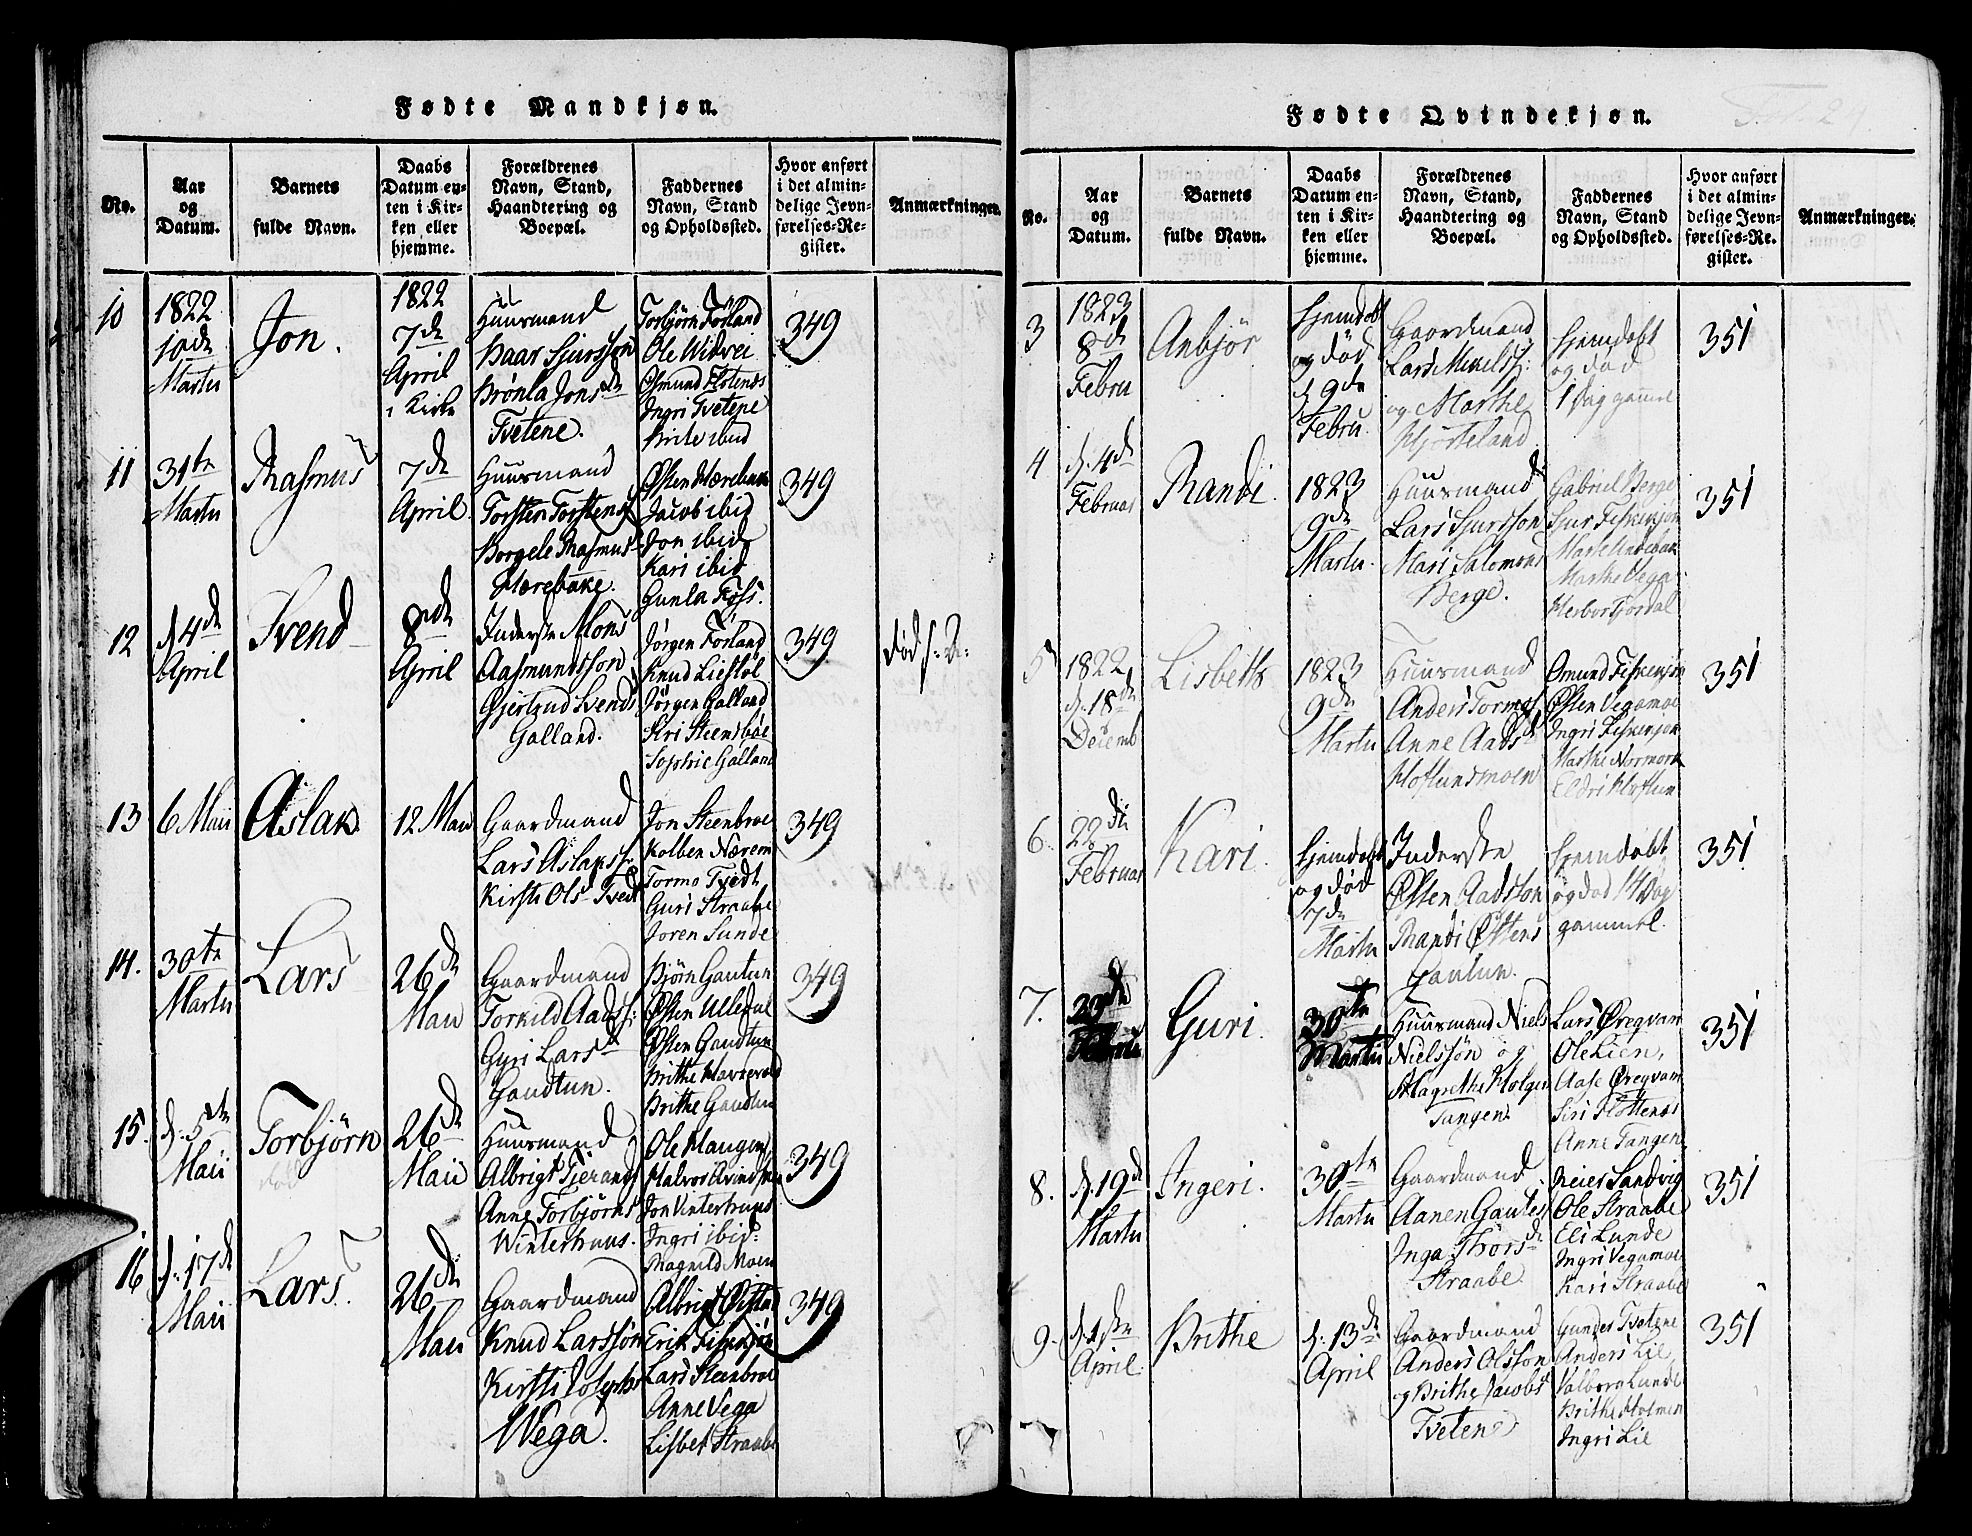 Fødte Mandkjøn.
No.
Aar
og
Datum.
Barnets
fulde Navn.
Daabs
Datum en-
ten i Kir-
ken eller
hjemme.
Forældrenes
Navn, Stand,
Haandtering og
Boepæl.
Faddernes
Navn, Stand
og Opholdssted.
Hvor anført
i det almin-
delige Jevn-
førelses-Re-
gister.
Anmærkninger.
10
1822
10de
Martii
Jon.
1822
7de
April
i Kirke
Huusmand
Haar Sjursson
Brønla Jonsd
Tvetene.
Torbjørn Førland
Ole Widvei
Osmund Flotenes
Ingri Tvetene
Brite ibid
349
11
31te
Martii
Rasmus
7de
April
Huusmand
Torsten Torstens
Borgele Rasmus
Hærebake.
Østen Hærebake
Jacob ibid
Jon ibid
Kari ibid
Gunla Foss.
349
12
d. 4de
April
Svend
8de
April
Inderste Mons
Aasmundsson
Gjertrud Svends
Galland.
Jørgen Førland
Knud Liestøl
Jørgen Galland
Siri Steensbøe
Sophie Galland
349
13
6 Maii
Aslak
12 Maii
Gaardmand
Lars Aslakss.
Kirsti Olsd Tvedt
Jon Steenbroe
Kolben Nærem
Tormo Tvedt
Guri Straabe
Joren Sunde
349
14.
30te
Martii
Lars
26de
Maii
Gaardmand
Torkild Aadss:
Gyri Larsd
Gautun.
Bjørn Gautun
Østen Ulledal
Østen Gautun
Brithe Havrevold
Brithe Gautun
349
15.
d. 5te
Maii
Torbjørn
død
26de
Maii
Huusmand
Albrigt Tjerands
Anne Torbjørns
Winterhuus.
Ole Haugen
Halvor Evindsta
Jon Vinterhuus
Ingri ibid:
Magnild Moen
349
16
d. 17de
Maii
Lars.
26de
Maii
Gaardmand
Knud Larssøn
Kirsti Tolephs
Wega.
Albrigt Øistad
Erik Fiskekjøn
Lars Steenbroe
Anne Vega
Lisbet Straabe
349
Fødte Qvindekjøn.
No.
Aar
og
Datum.
Barnets
fulde Navn.
Daabs
Datum en-
ten i Kir-
ken eller
hjemme.
Forældrenes
Navn, Stand,
Haandtering og
Boepæl.
Faddernes
Navn, Stand
og Opholdssted.
Hvor anført
i det almin-
delige Jevn-
førelses-Re.
gister.
Anmærkninger.
3
1823
8de
Febru
Anbjør
hjemdøbt
og død
d 9de
Febru.
Gaardmand
Lars Mikelss:
og Marthe
Hjorteland
hjemdøbt
og død
1 Dag gamel
351
4
d. 4de
Februar
Randi.
1823
9de
Martii.
Huusmand
Lars Sjursson
Mari Salomons
Berge.
Gabriel Berge
Sjur Fiskekjøn
Marthe Vega
Herbor Fjordal
351
5
1822
d. 18de
Decemb
Lisbeth
1823
9de
Martii
Huusmand
Anders Tormoss
Anne Aadsd
Hoflundsmoen
Omund Fiskekjøn
Østen Vegamoe
Ingri Fiskekjøn
Marthe Normork
Eldri Hoflun
351
6.
22de
Februar
Kari.
hjemdøbt
og død
7de
Martii
Inderste
Østen Aadsson
Randi Østens
Gautun.
hjemdøbt
og død 14 Dag
gammel.
351
7.
Guri.
30te
Martii
Huusmand Niels
Nielssøn og
Magrethe Holgen
Tangen.
Lars Øregvam
Ole Lien,
Aase Øregvam
Siri Flottenes
Anne Tangen
351
8.
d. 19de
Martii
Ingeri.
30te
Martii
Gaardmand
Aanen Gautes
Inga Thorsd
Straabe
Reier Sandvig
Ole Straabe
Eli Lunde
Ingri Vegamoe
Kari Straabe
351
9.
d. 1ste
April.
Brithe
d: 13de
April
Gaardmand
Anders Olsson
og Brithe Jacobs
Tveten
Gunder Tvetene
Anders Lie
Valborg Lunde
Brithe Holmen
Ingri Lie
351